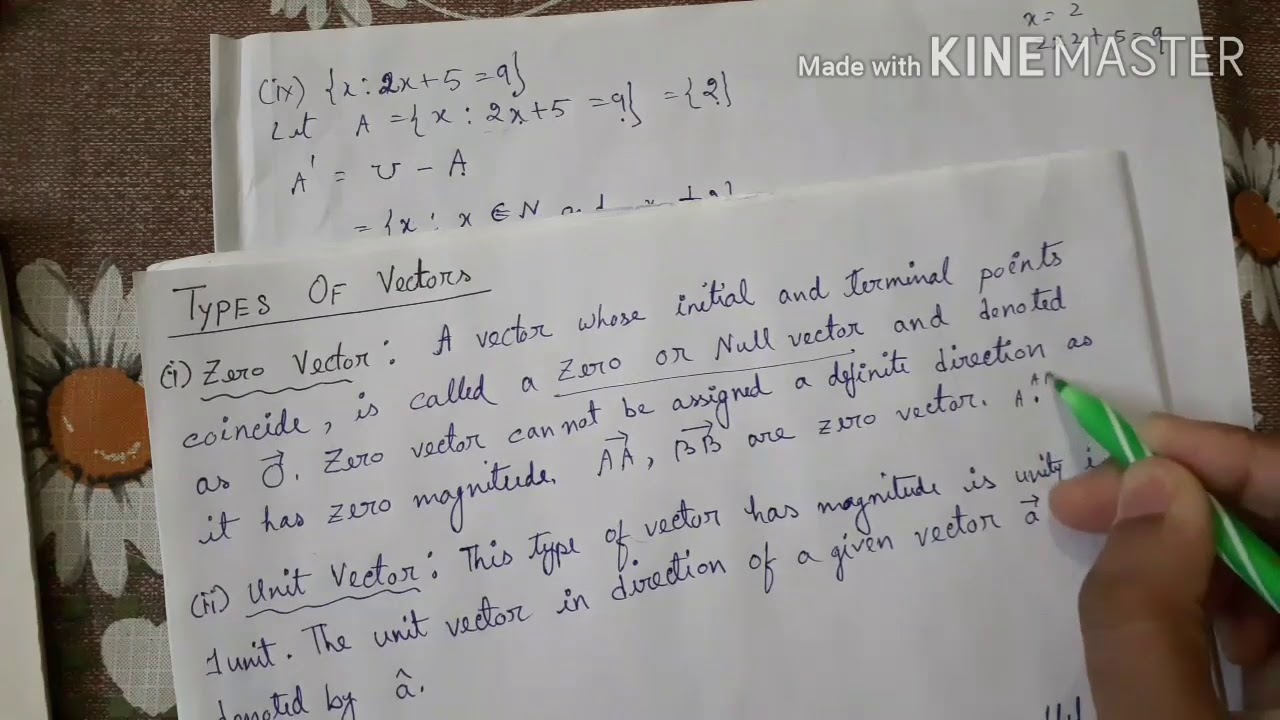 x = 2
2.2 + 5 = 9
Made with KINEMASTER
(ix) {x : 2x + 5 = 9}
Let A = {x : 2x + 5 = 9} = {2}
A' = U - A
= {x : x ∈ N and x ≠ 2}
TYPES OF Vectors
(i) Zero Vector : A vector whose initial and terminal points
coincide, is called a Zero or Null vector and denoted
as \vec{O}. Zero vector cannot be assigned a definite direction as
it has zero magnitude. \vec{AA}, \vec{BB} are zero vector. A
(ii) Unit Vector : This type of vector has magnitude is unity
1 unit. The unit vector in direction of a given vector \vec{a}
denoted by â.